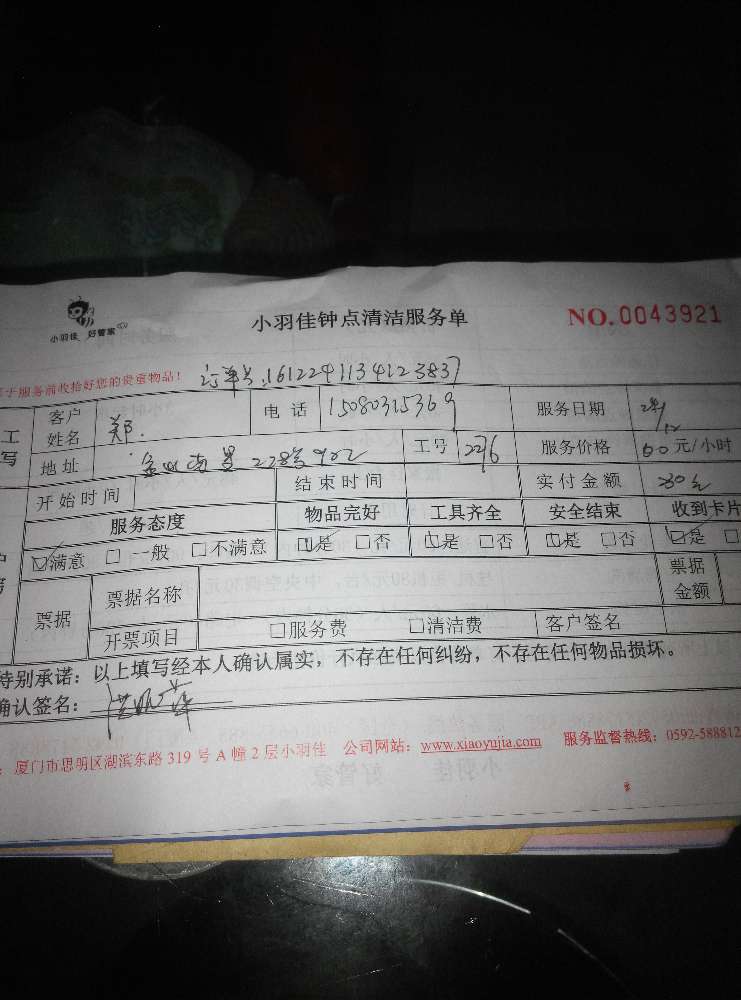 小羽佳 好管家
小羽佳钟点清洁服务单
NO.0043921
于服务前收拾好您的贵重物品！
订单号:1612241134123837
工 客户姓名 郑. 电话 15080315369 服务日期
写 地址 228号 工号 2276 服务价格 60元/小时
开始时间 结束时间 实付金额 30元
服务态度 物品完好 工具齐全 安全结束 收到卡片
☑满意 □一般 □不满意 ☑是 □否 ☑是 □否 ☑是 □否 ☑是 □
票据 票据名称 票据金额
开票项目 □服务费 □清洁费 客户签名
特别承诺：以上填写经本人确认属实，不存在任何纠纷，不存在任何物品损坏。
确认签名：
：厦门市思明区湖滨东路 319 号 A 幢 2 层小羽佳 公司网站：www.xiaoyujia.com 服务监督热线：0592-588812